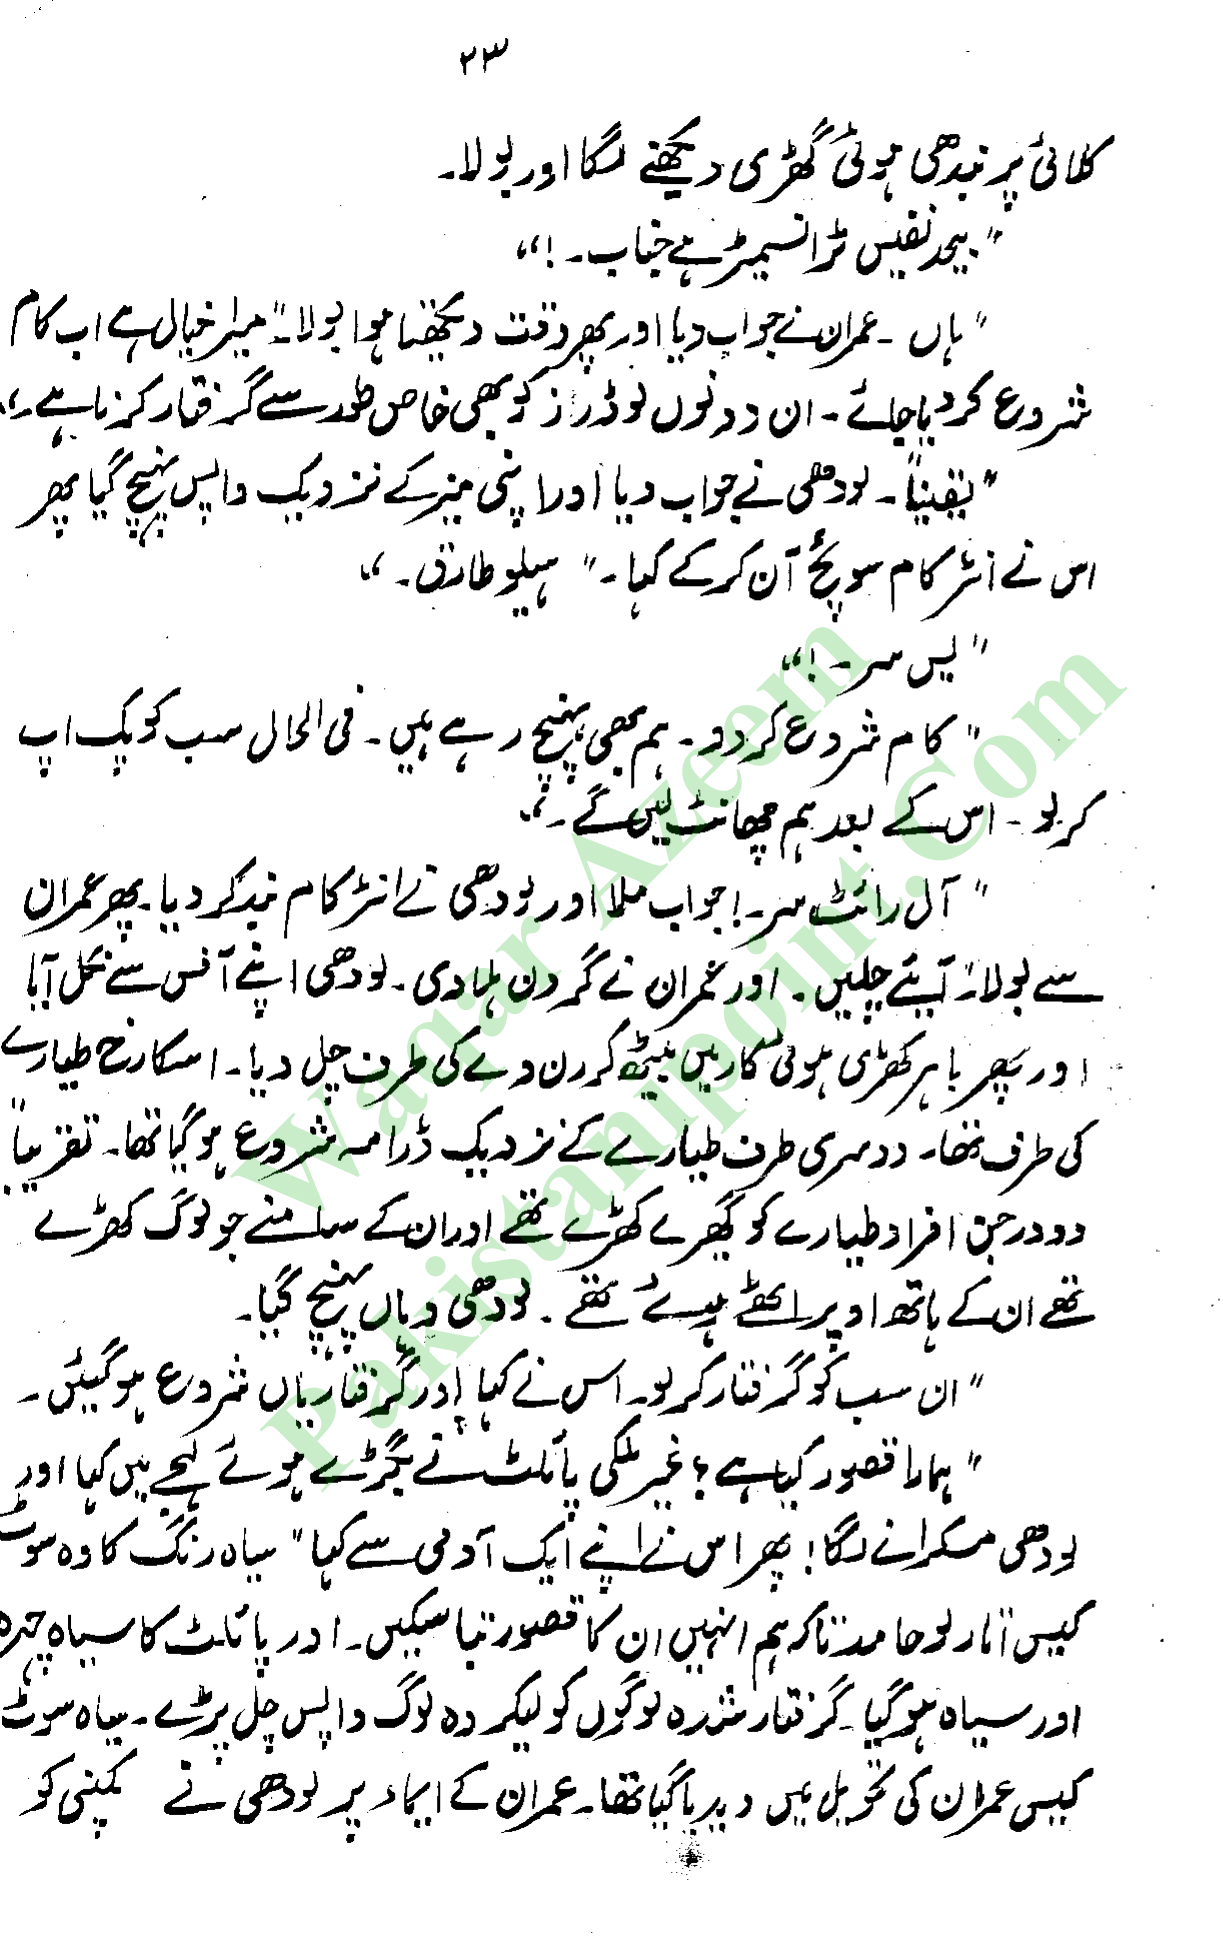 ۲۳
کلائی پر بندھی ہوئی گھڑی دیکھنے لگا اور بولا۔
" بیحد نفیس ٹرانسمیٹر ہے جناب ۔ !"
" ہاں ۔ عمران نے جواب دیا اور پھر وقت دیکھتا ہوا بولا۔" میرا خیال ہے اب کام
شروع کر دیا جائے ۔ ان دونوں لوڈرز کو بھی خاص طور سے گرفتار کرنا ہے ۔"
" یقیناً ۔ لودھی نے جواب دیا اور اپنی میز کے نزدیک واپس پہنچ گیا پھر
اس نے انٹر کام سوئچ آن کر کے کہا ۔" ہیلو طارق ۔"
" یس سر ۔ !"
" کام شروع کر دو ۔ ہم بھی پہنچ رہے ہیں ۔ فی الحال سب کو پک اپ
کر لو ۔ اس کے بعد ہم چھانٹ لیں گے ۔"
" آل رائٹ سر ۔! جواب ملا اور لودھی نے انٹر کام بند کر دیا ۔ پھر عمران
سے بولا۔" آیئے چلیں ۔ اور عمران نے گردن ہلا دی ۔ لودھی اپنے آفس سے نکل آیا
اور پھر باہر کھڑی ہوئی کار میں بیٹھ کر رن وے کی طرف چل دیا ۔ اس کا رخ طیارے
کی طرف تھا ۔ دوسری طرف طیارے کے نزدیک ڈرامہ شروع ہو گیا تھا ۔ تقریباً
دو درجن افراد طیارے کو گھیرے کھڑے تھے اور ان کے سامنے جو لوگ کھڑے
تھے ان کے ہاتھ اوپر اٹھے ہوئے تھے ۔ لودھی وہاں پہنچ گیا ۔
" ان سب کو گرفتار کر لو ۔ اس نے کہا اور گرفتاریاں شروع ہو گئیں ۔
" ہمارا قصور کیا ہے ؟ غیر ملکی پائلٹ نے بگڑے ہوئے لہجے میں کہا اور
لودھی مسکرانے لگا ! پھر اس نے اپنے ایک آدمی سے کہا " سیاہ رنگ کا وہ سوٹ
کیس اتار لو حامد تاکہ ہم انہیں ان کا قصور بتا سکیں ۔ اور پائلٹ کا سیاہ چہرہ
اور سیاہ ہو گیا ۔ گرفتار شدہ لوگوں کو لیکر وہ لوگ واپس چل پڑے ۔ سیاہ سوٹ
کیس عمران کی تحویل میں دیدیا گیا تھا ۔ عمران کے ایماء پر لودھی نے کمپنی کو
Waqar Azeem
Pakistanipoint.Com